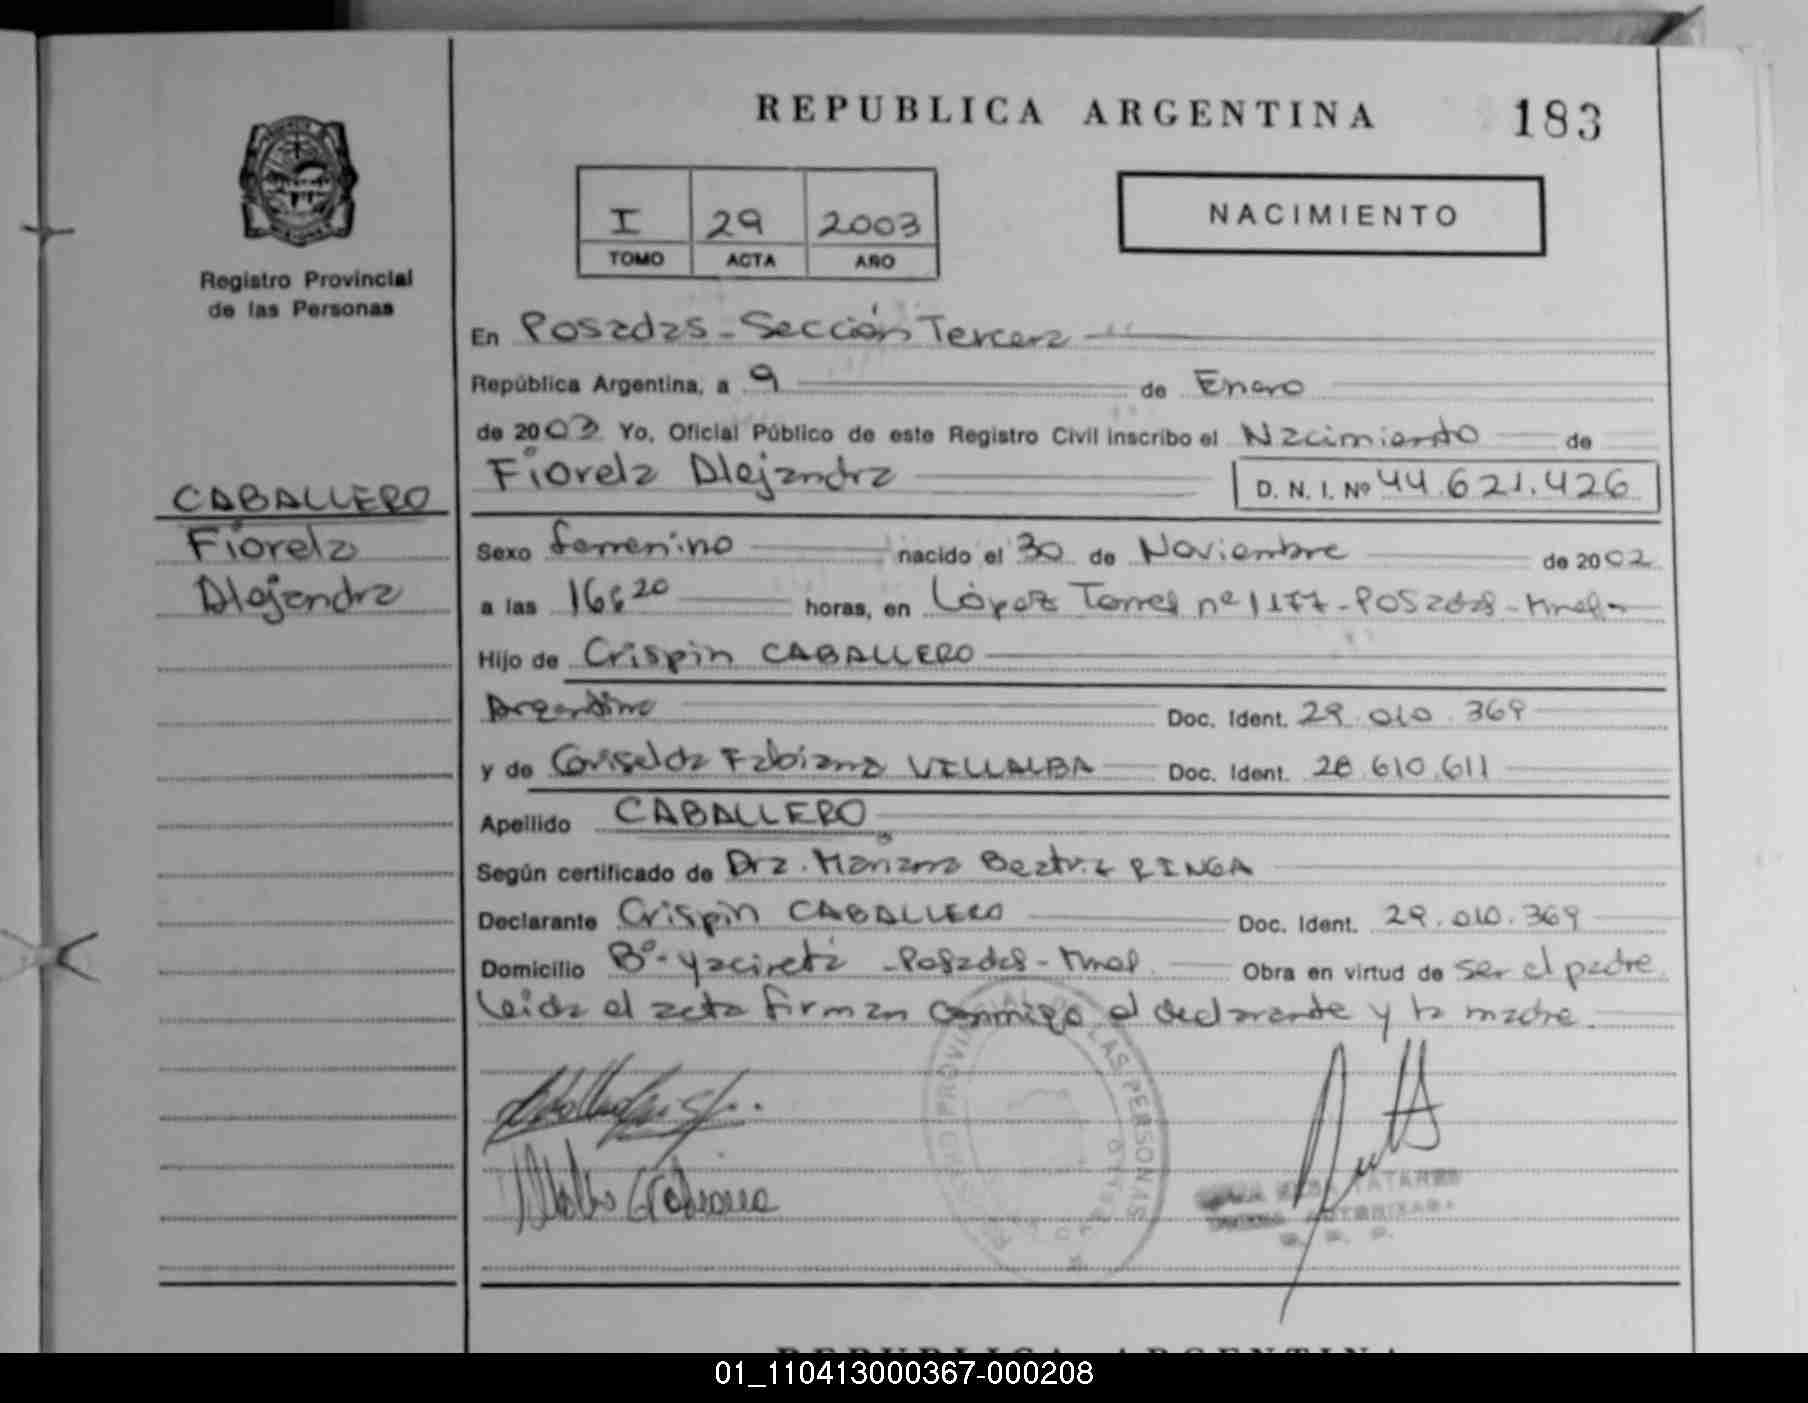 REPUBLICA ARGENTINA 183
I 29 2003
TOMO ACTA AÑO
NACIMIENTO
Registro Provincial
de las Personas
CABALLERO
Fiorela
Alejandra
En Posadas - Sección Tercera
República Argentina, a 9 de Enero
de 2003 Yo, Oficial Público de este Registro Civil inscribo el Nacimiento de
Fiorela Alejandra D. N. I. Nº 44.621.426
Sexo femenino nacido el 30 de Noviembre de 2002
a las 16:20 horas, en López Torres nº 1177 - Posadas - Mnes
Hijo de Crispin CABALLERO
Argentino Doc. Ident. 29.010.369
y de Griselda Fabiana VILLALBA Doc. Ident. 28.610.611
Apellido CABALLERO
Según certificado de Dra. Mariana Beatriz RINGA
Declarante Crispin CABALLERO Doc. Ident. 29.010.369
Domicilio Bº - Yacireta - Posadas - Mnes. Obra en virtud de ser el padre
Leida el acta firman conmigo el declarante y la madre.
REGISTRO PROVINCIAL DE LAS PERSONAS
REPUBLICA ARGENTINA
01_110413000367-000208